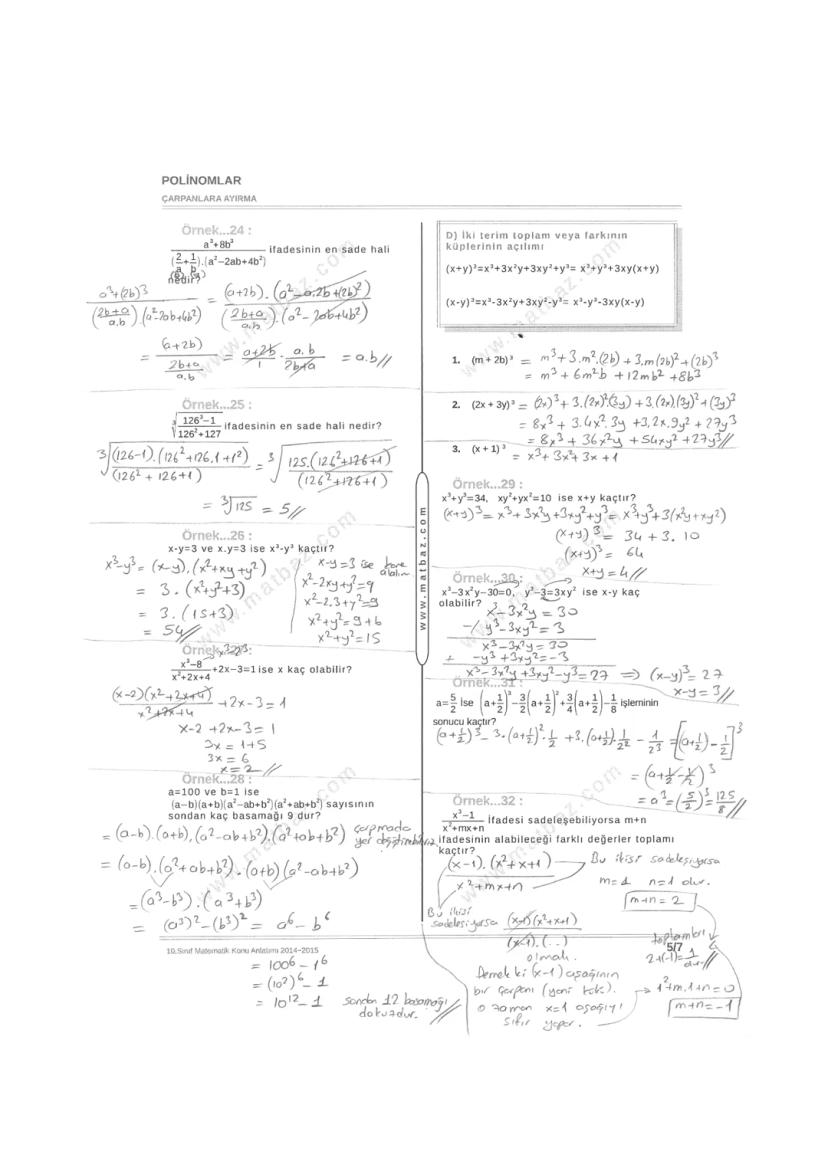 POLİNOMLAR
ÇARPANLARA AYIRMA
Örnek...24 :
(a³+8b³)/((2/a+1/b).(a²−2ab+4b²)) ifadesinin en sade hali
(b) (a)
nedir?
(a³+(2b)³)/(((2b+a)/a.b).(a²-2ab+4b²)) = ((a+2b).(a²-a.2b+(2b)²))/(((2b+a)/a.b).(a²-2ab+4b²))
= (a+2b)/((2b+a)/a.b) = (a+2b)/1 . a.b/(2b+a) = a.b//
Örnek...25 :
∛((126³−1)/(126²+127)) ifadesinin en sade hali nedir?
∛(((126-1).(126²+126.1+1²))/(126²+126+1)) = ∛((125.(126²+126+1))/(126²+126+1))
= ∛125 = 5//
Örnek...26 :
x-y=3 ve x.y=3 ise x³-y³ kaçtır?
x³-y³ = (x-y).(x²+xy+y²)
= 3.(x²+y²+3)
= 3.(15+3)
= 54//
x-y=3 ise kare alalım
x²-2xy+y²=9
x²-2.3+y²=9
x²+y²=9+6
x²+y²=15
(x³−8)/(x²+2x+4)+2x−3=1 ise x kaç olabilir?
((x-2)(x²+2x+4))/(x²+2x+4) +2x-3=1
x-2+2x-3=1
3x=1+5
3x=6
x=2//
Örnek...28 :
a=100 ve b=1 ise
(a−b)(a+b)(a²−ab+b²)(a²+ab+b²) sayısının
sondan kaç basamağı 9 dur?
= (a-b).(a+b).(a²-ab+b²).(a²+ab+b²) çarpmada yer değiştirebiliriz
= (a-b).(a²+ab+b²).(a+b)(a²-ab+b²)
= (a³-b³).(a³+b³)
= (a³)²-(b³)² = a⁶-b⁶
10.Sınıf Matematik Konu Anlatımı 2014−2015
= 100⁶-1⁶
= (10²)⁶-1
= 10¹²-1 sondan 12 basamağı
dokuzdur.
www.matbaz.com
D) İki terim toplam veya farkının
küplerinin açılımı
(x+y)³=x³+3x²y+3xy²+y³= x³+y³+3xy(x+y)
(x-y)³=x³-3x²y+3xy²-y³= x³-y³-3xy(x-y)
1. (m + 2b)³ = m³+3.m².(2b)+3.m(2b)²+(2b)³
= m³+6m²b+12mb²+8b³
2. (2x + 3y)³ = (2x)³+3.(2x)²(3y)+3.(2x).(3y)²+(3y)³
= 8x³+3.4x².3y+3.2x.9y²+27y³
= 8x³+36x²y+54xy²+27y³//
3. (x + 1)³ = x³+3x²+3x+1
Örnek...29 :
x³+y³=34, xy²+yx²=10 ise x+y kaçtır?
(x+y)³=x³+3x²y+3xy²+y³=x³+y³+3(x²y+xy²)
(x+y)³=34+3.10
(x+y)³=64
x+y=4//
Örnek...30 :
x³−3x²y−30=0, y³−3=3xy² ise x-y kaç
olabilir?
x³-3x²y=30
-/ y³-3xy²=3
x³-3x²y=30
+ -y³+3xy²=-3
x³-3x²y+3xy²-y³=27 ⇒ (x-y)³=27
x-y=3//
Örnek...31 :
a=5/2 ise (a+1/2)³−3/2(a+1/2)²+3/4(a+1/2)−1/8 işleminin
sonucu kaçtır?
(a+1/2)³-3.(a+1/2)².1/2+3.(a+1/2).1/2²-1/2³=[(a+1/2)-1/2]³
= (a+1/2-1/2)³
= a³=(5/2)³=125/8//
Örnek...32 :
(x³−1)/(x²+mx+n) ifadesi sadeleşebiliyorsa m+n
ifadesinin alabileceği farklı değerler toplamı
kaçtır?
((x-1).(x²+x+1))/(x²+mx+n) Bu ikisi sadeleşiyorsa
m=1 n=1 olur.
m+n=2
Bu ikisi
sadeleşiyorsa ((x-1)(x²+x+1))/((x-1).(..))
olmalı.
toplamları
2+(-1)=1
dur//
5/7
Demek ki (x-1) aşağının
bir çarpanı (yani kök).
o zaman x=1 aşağıyı
sıfır yapar.
1²+m.1+n=0
m+n=-1
www.matbaz.com